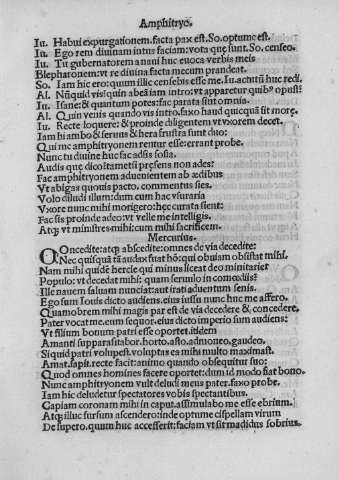 Amphitryo.
Iu. Habui expurgationem. facta pax est. So. optume est.
Iu. Ego rem diuinam intus faciam: vota que sunt. So. censeo.
Iu. Tu gubernatorem a naui huc euoca verbis meis
Blepharonem: vt re diuina facta mecum prandeat.
So. Iam hic ero: quum illic censebis esse me. Iu. actutū huc redi.
Al. Nūquid vis: quin abeā iam intro: vt apparetur quibꝰ opusꝰ?
Iu. Isane: & quantum potes: fac parata sint omnia.
Al. Quin venis quando vis intro. faxo haud quicquā sit moræ.
Iu. Recte loquere: & proinde diligentem vt vxorem decet.
Iam hi ambo & seruus & hera frustra sunt duo:
Qui me amphitryonem rentur esse: errant probe.
Nunc tu diuine huc fac adsis sosia.
Audis que dico: tametsi præsens non ades?
Fac amphitryonem aduenientem ab ædibus
Vt abigas quouis pacto. commentus sies.
Volo diludi illum: dum cum hac vsuraria
Vxore nunc mihi morigero: hęc curata sient:
Fac sis proinde adeo: vt velle me intelligis.
Atqȝ vt ministres mihi: cum mihi sacrificem.
Mercurius.
COncedite: atqȝ abscedite: omnes de via decedite:
Nec quisquā tā audax fuat hō: qui obuiam obsistat mihi.
Nam mihi quidē hercle qui minus liceat deo minitarier
Populo: vt decedat mihi: quam seruulo in comœdiis?
Ille nauem saluam nunciat: aut irati aduentum senis.
Ego sum Iouis dicto audiens. eius iussu nunc huc me affero.
Quamobrem mihi magis par est de via decedere & concedere.
Pater vocat me. eum sequor. eius dicto imperio sum audiens:
Vt filium bonum patri esse oportet. itidem
Amanti supparasitabor. horto. asto. admoneo. gaudeo.
Siquid patri volupest. voluptas ea mihi multo maximast.
Amat. sapit. recte facit: animo quando obsequitur suo:
Quod omnes homines facere oportet: dum id modo fiat bono.
Nunc amphitryonem vult deludi meus pater. faxo probe.
Iam hic deludetur spectatores vobis spectantibus.
Capiam coronam mihi in caput. assimulabo me esse ebrium.
Atqȝ illuc sursum ascendero: inde optume cispellam virum
De supero. quum huc accesserit: faciam vt sit madidus sobrius.